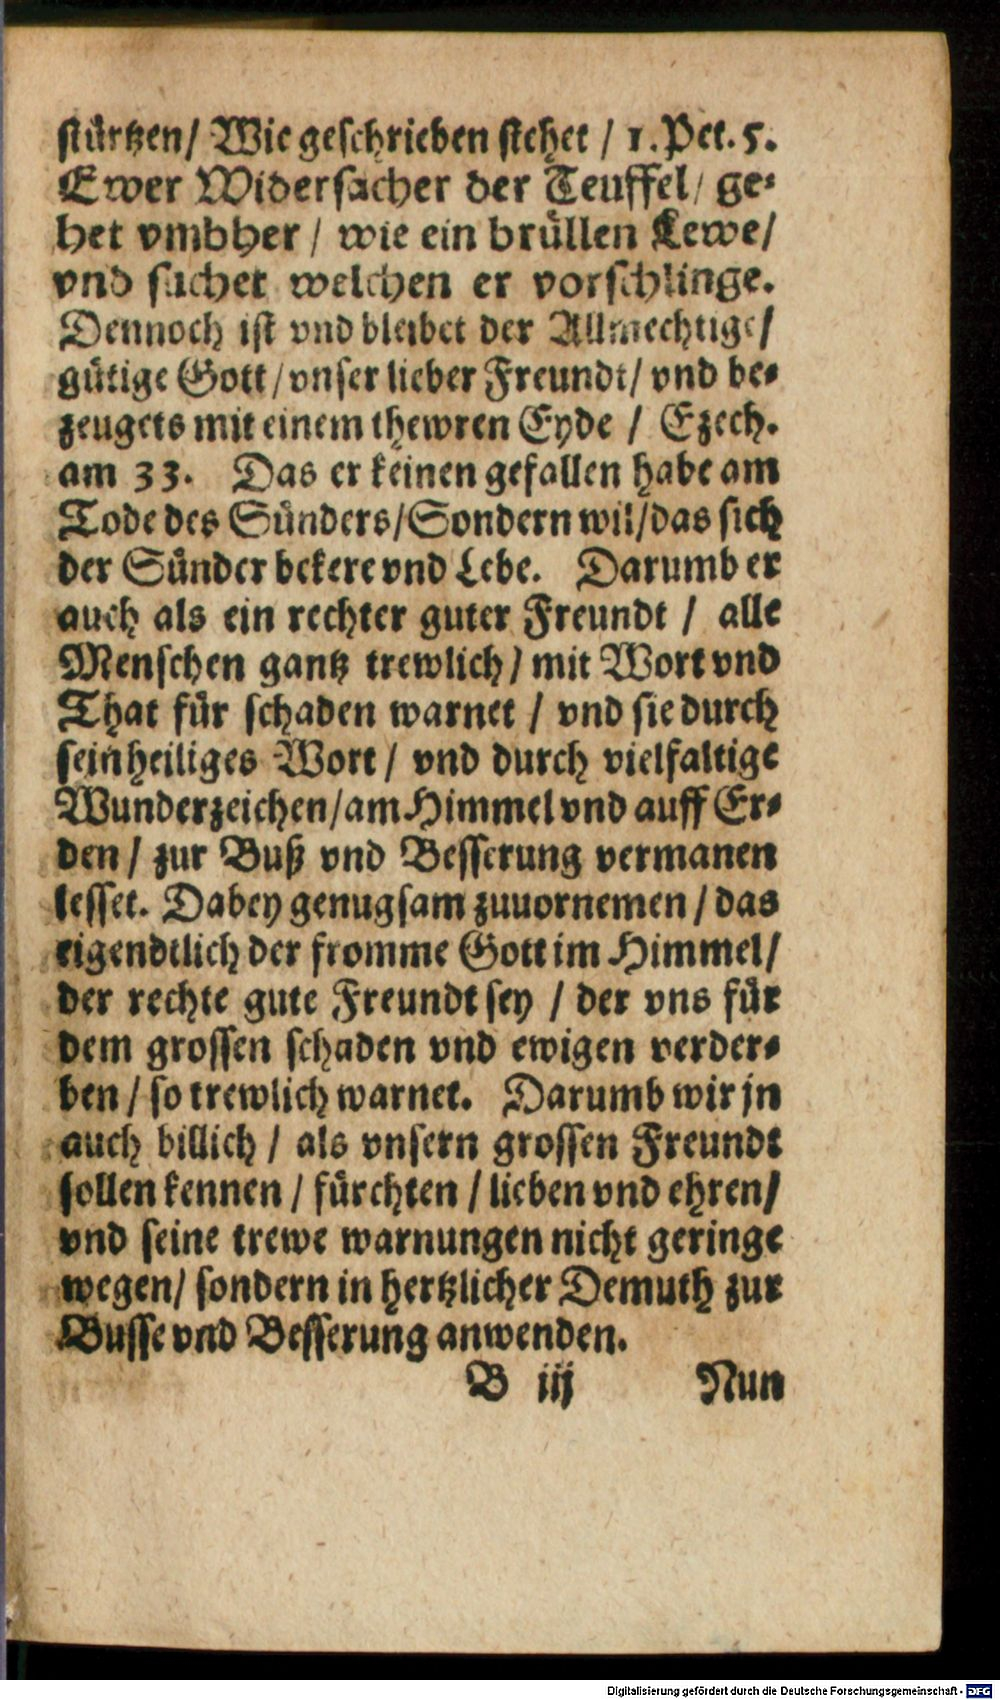 stürtzen/ Wie geschrieben stehet / 1. Pet. 5.
Ewer Widersacher der Teuffel/ ge-
het vmbher / wie ein brüllen Lewe/
vnd suchet welchen er vorschlinge.
Dennoch ist vnd bleibet der Allmechtige/
gütige Gott/ vnser lieber Freundt/ vnd be-
zeugets mit einem thewren Eyde / Ezech.
am 33. Das er keinen gefallen habe am
Tode des Sünders/ Sondern wil/ das sich
der Sünder bekere vnd Lebe. Darumb er
auch als ein rechter guter Freundt / alle
Menschen gantz trewlich/ mit Wort vnd
That für schaden warnet / vnd sie durch
sein heiliges Wort / vnd durch vielfaltige
Wunderzeichen/ am Himmel vnd auff Er-
den / zur Buß vnd Besserung vermanen
lesset. Dabey genugsam zuuornemen / das
eigendtlich der fromme Gott im Himmel/
der rechte gute Freundt sey / der vns für
dem grossen schaden vnd ewigen verder-
ben / so trewlich warnet. Darumb wir jn
auch billich / als vnsern grossen Freundt
sollen kennen / fürchten / lieben vnd ehren/
vnd seine trewe warnungen nicht geringe
wegen/ sondern in hertzlicher Demuth zur
Busse vnd Besserung anwenden.
B iij Nun
Digitalisierung gefördert durch die Deutsche Forschungsgemeinschaft - DFG